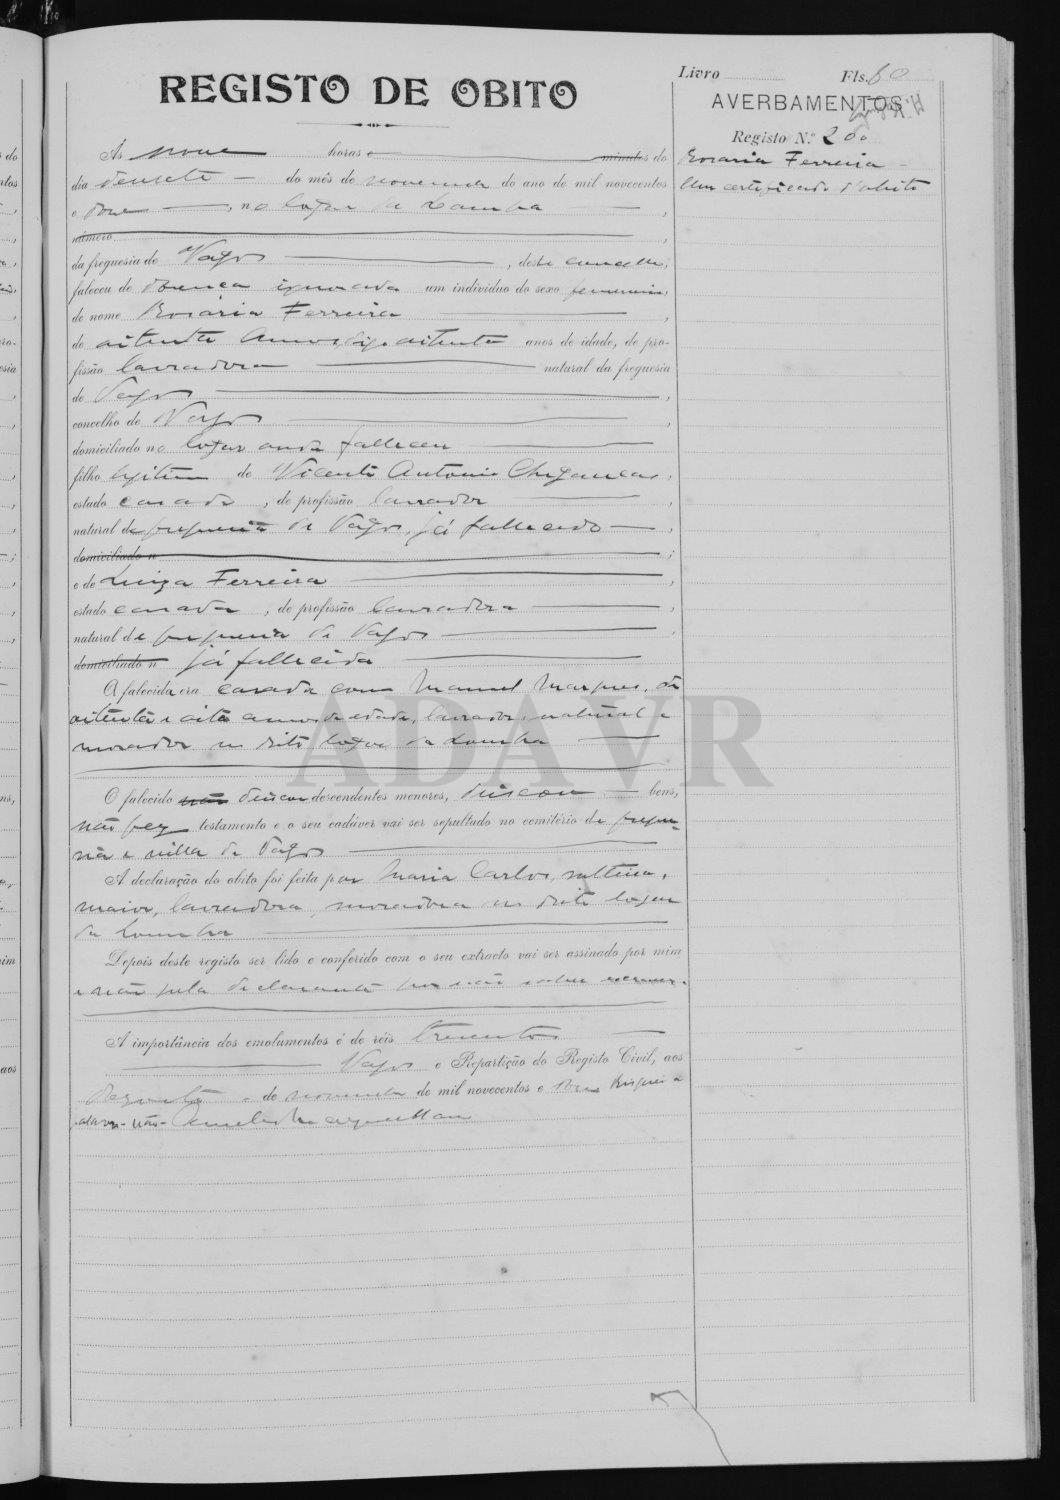 REGISTO DE OBITO
Livro Fls. 60
AVERBAMENTOS
Registo N.º 200
Rosaria Ferreira
Um certificado d'obito
Ás nove horas e minutos do
dia dezasete do mês de novembro do ano de mil novecentos
e doze, no logar da Lomba,
número,
da freguesia de Vagos, deste concelho,
faleceu de doença ignorada um individuo do sexo feminino,
de nome Rosaria Ferreira,
de oitenta annos digo oitenta anos de idade, de pro-
fissão lavradora natural da freguesia
de Vagos,
concelho de Vagos,
domiciliado no logar onde falleceu
filho legitimo de Vicente Antonio,
estado casado, de profissão lavrador
natural da freguesia de Vagos, já fallecido,
domiciliado n;
e de Luiza Ferreira,
estado casada, de profissão lavradora,
natural da freguesia de Vagos,
domiciliado n já fallecida
A falecida era casada com Manuel Marques, de
oitenta e oito annos de edade, lavrador, natural e
morador no dito logar da Lomba
O falecido não deixou descendentes menores, deixou bens,
não fez testamento e o seu cadáver vai ser sepultado no cemitério da fregue-
sia e villa de Vagos
A declaração do obito foi feita por Maria Carlos, solteira,
maior, lavradora, moradora no dito logar
da Lomba
Depois deste registo ser lido e conferido com o seu extracto vai ser assinado por mim
e não pela declarante por não saber escrever.
A importância dos emolumentos é de réis trezentos
Vagos e Repartição do Registo Civil, aos
dezasete de novembro de mil novecentos e doze Risquei a
palavra - não -
ADAVR